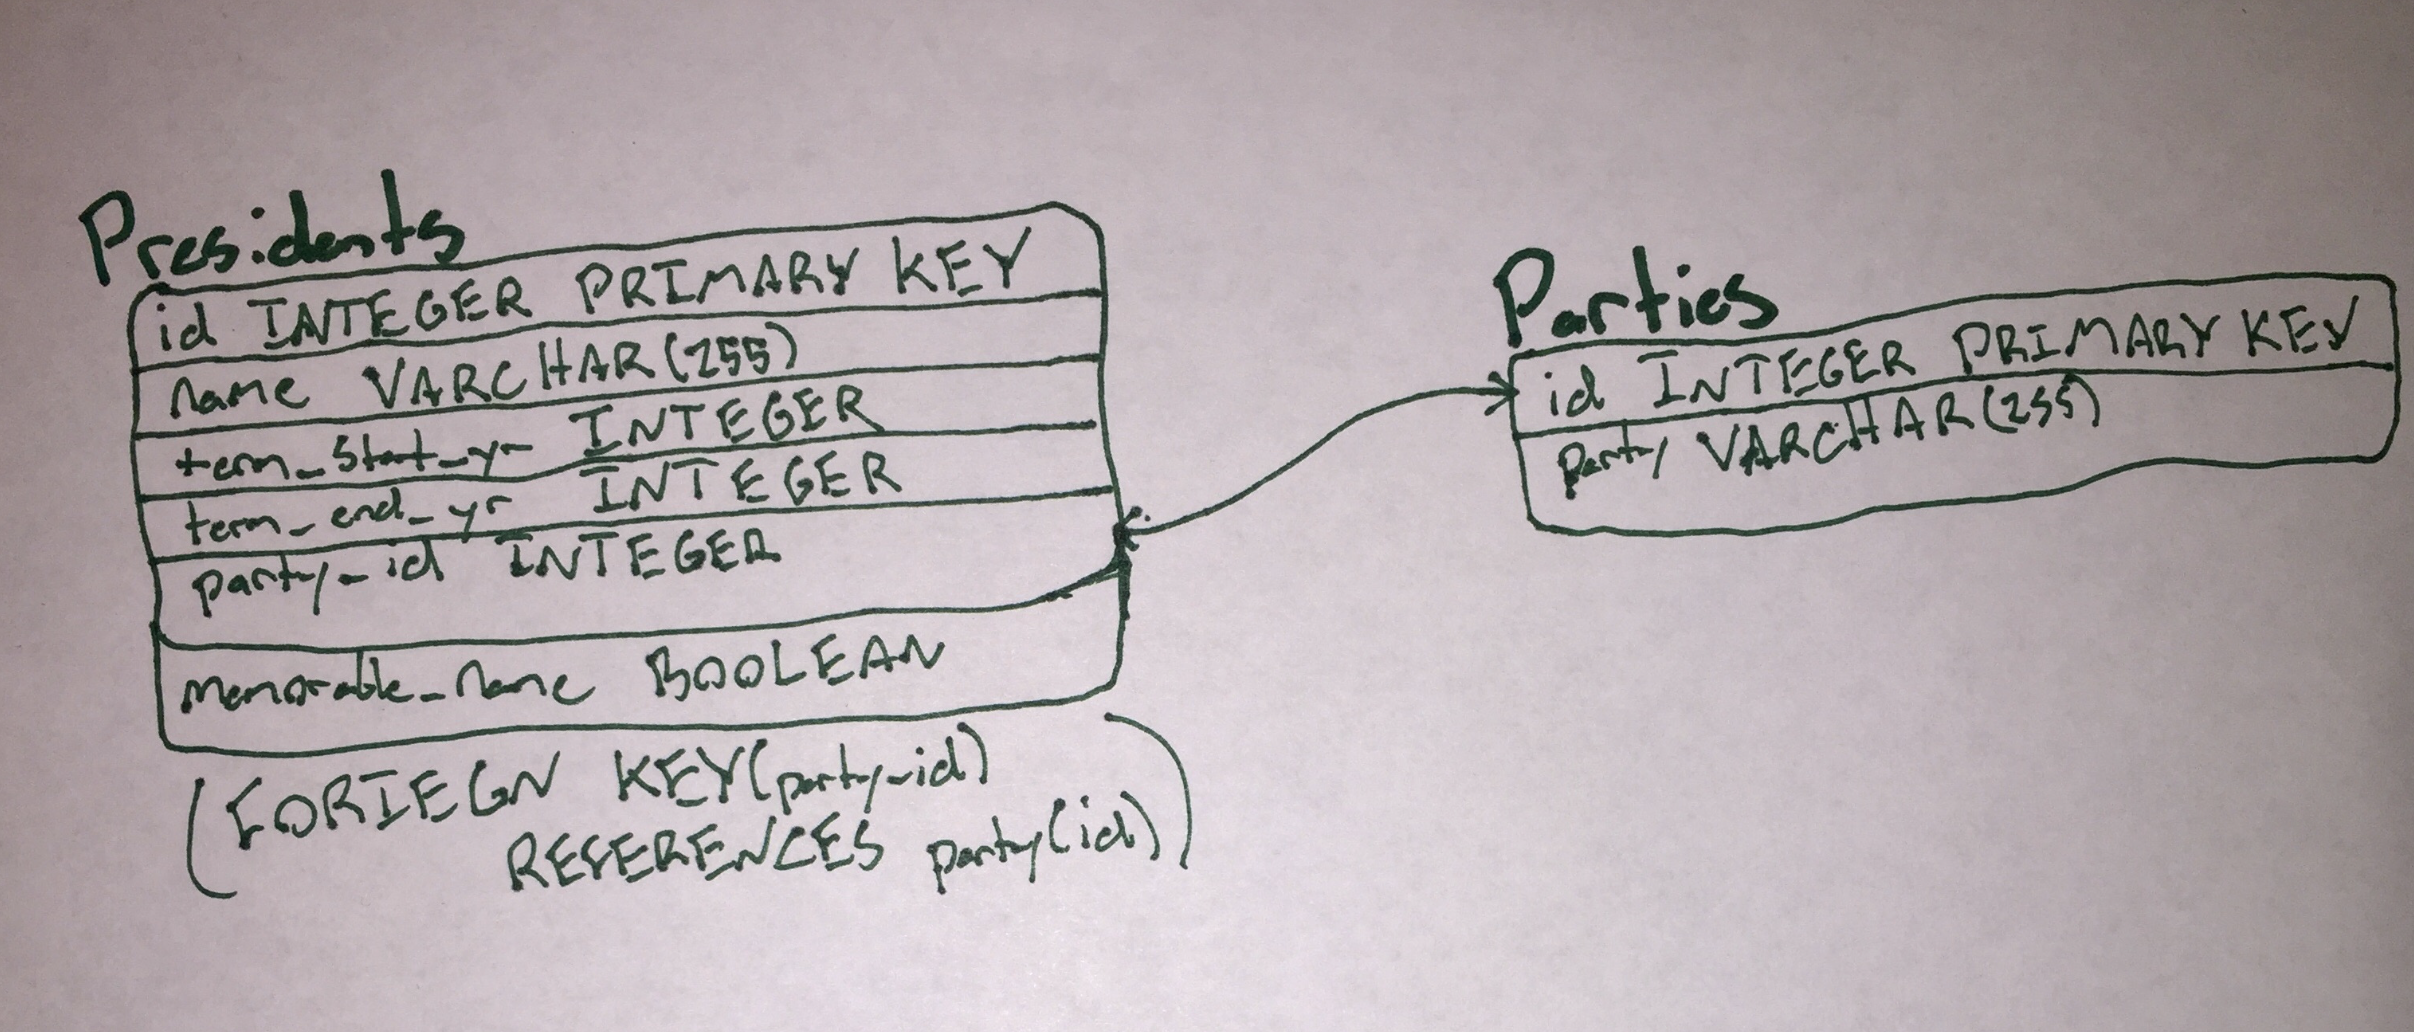 Presidents
id INTEGER PRIMARY KEY
name VARCHAR(255)
term_start_yr INTEGER
term_end_yr INTEGER
party_id INTEGER
memorable_name BOOLEAN
(FORIEGN KEY(party_id)
REFERENCES party(id))
Parties
id INTEGER PRIMARY KEY
party VARCHAR(255)